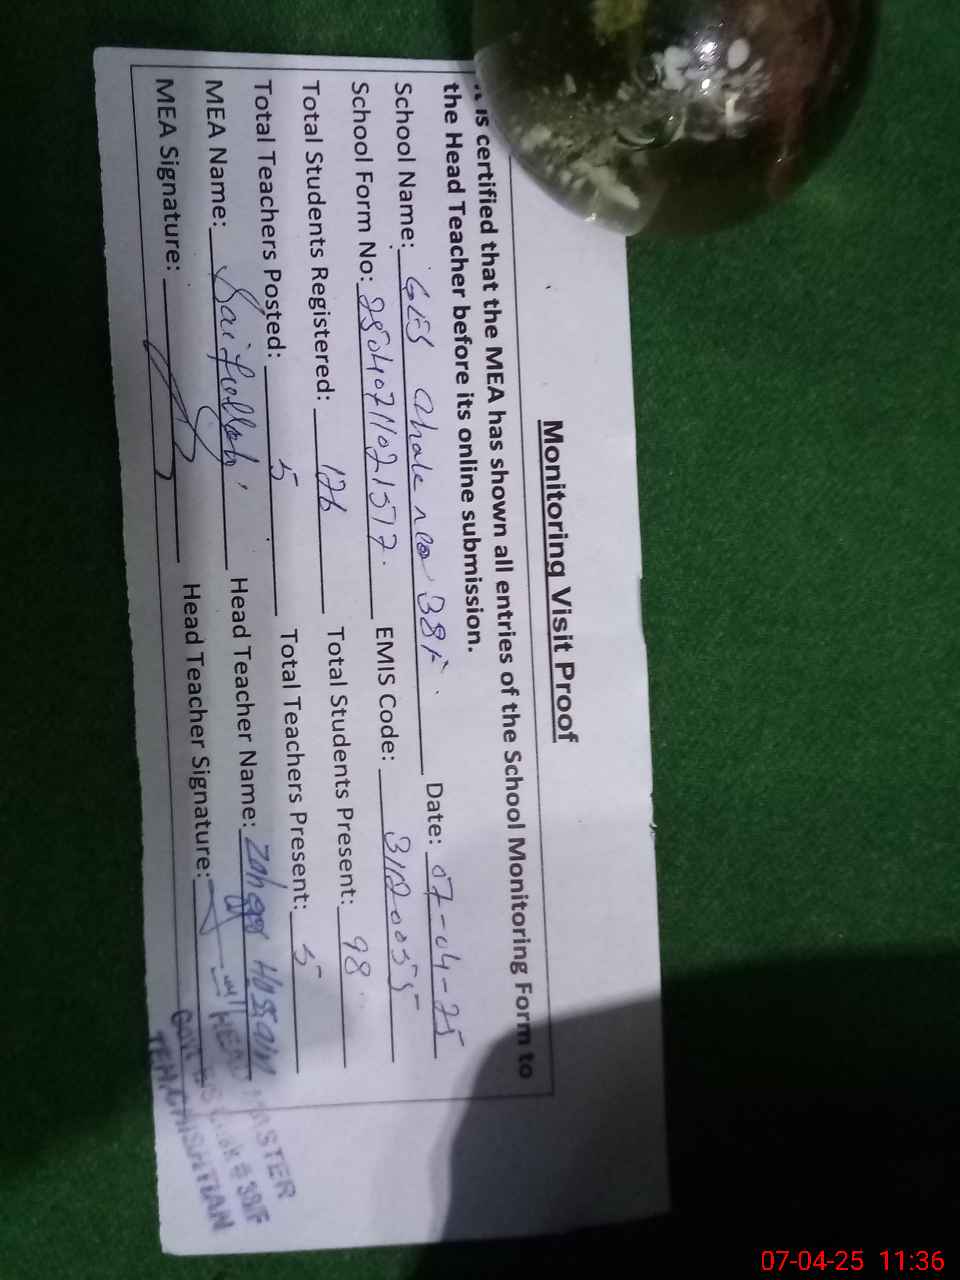 Monitoring Visit Proof
is certified that the MEA has shown all entries of the School Monitoring Form to
the Head Teacher before its online submission.
School Name: GES Chak no 38F. Date: 07-04-25
School Form No: 25040711021577. EMIS Code: 31120055
Total Students Registered: 126 Total Students Present: 98
Total Teachers Posted: 5 Total Teachers Present: 5
MEA Name: Saifullah Head Teacher Name: Zaheer Hussain
MEA Signature: Head Teacher Signature:
HEAD MASTER
# 38/F
TEH, CHISHTIAN
07-04-25 11:36